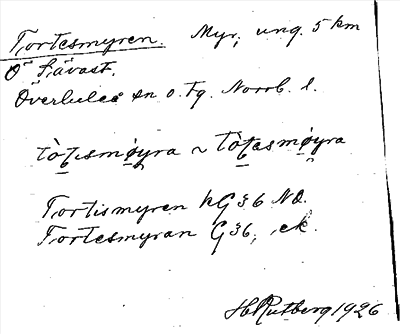 Tortesmyren. Myr, ung. 5 km
Ö Sävast.
Överluleå sn o. tg. Norrb. l.
tò̀ṭısmøyra ~ tò̀ṭasmøyra
Tortismyren hG36 NO.
Tortesmyran G36, ek.
HRutberg 1926